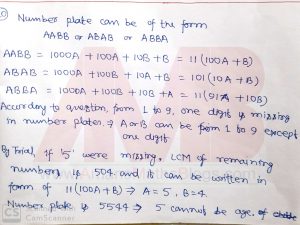 Number plate can be of the form
AABB or ABAB or ABBA
AABB = 1000A + 100A + 10B + B = 11(100A + B)
ABAB = 1000A + 100B + 10A + B = 101(10A + B)
ABBA = 1000A + 100B + 10B + A = 11(91A + 10B)
According to question, from 1 to 9, one digit is missing
in number plates. ⇒ A or B can be from 1 to 9 except
one digit
By Trial, if '5' were missing, LCM of remaining
numbers is 504 and it can be written in
form of 11(100A + B) ⇒ A = 5, B = 4
Number plate is 5544 ⇒ 5 cannot be age of
CS CamScanner